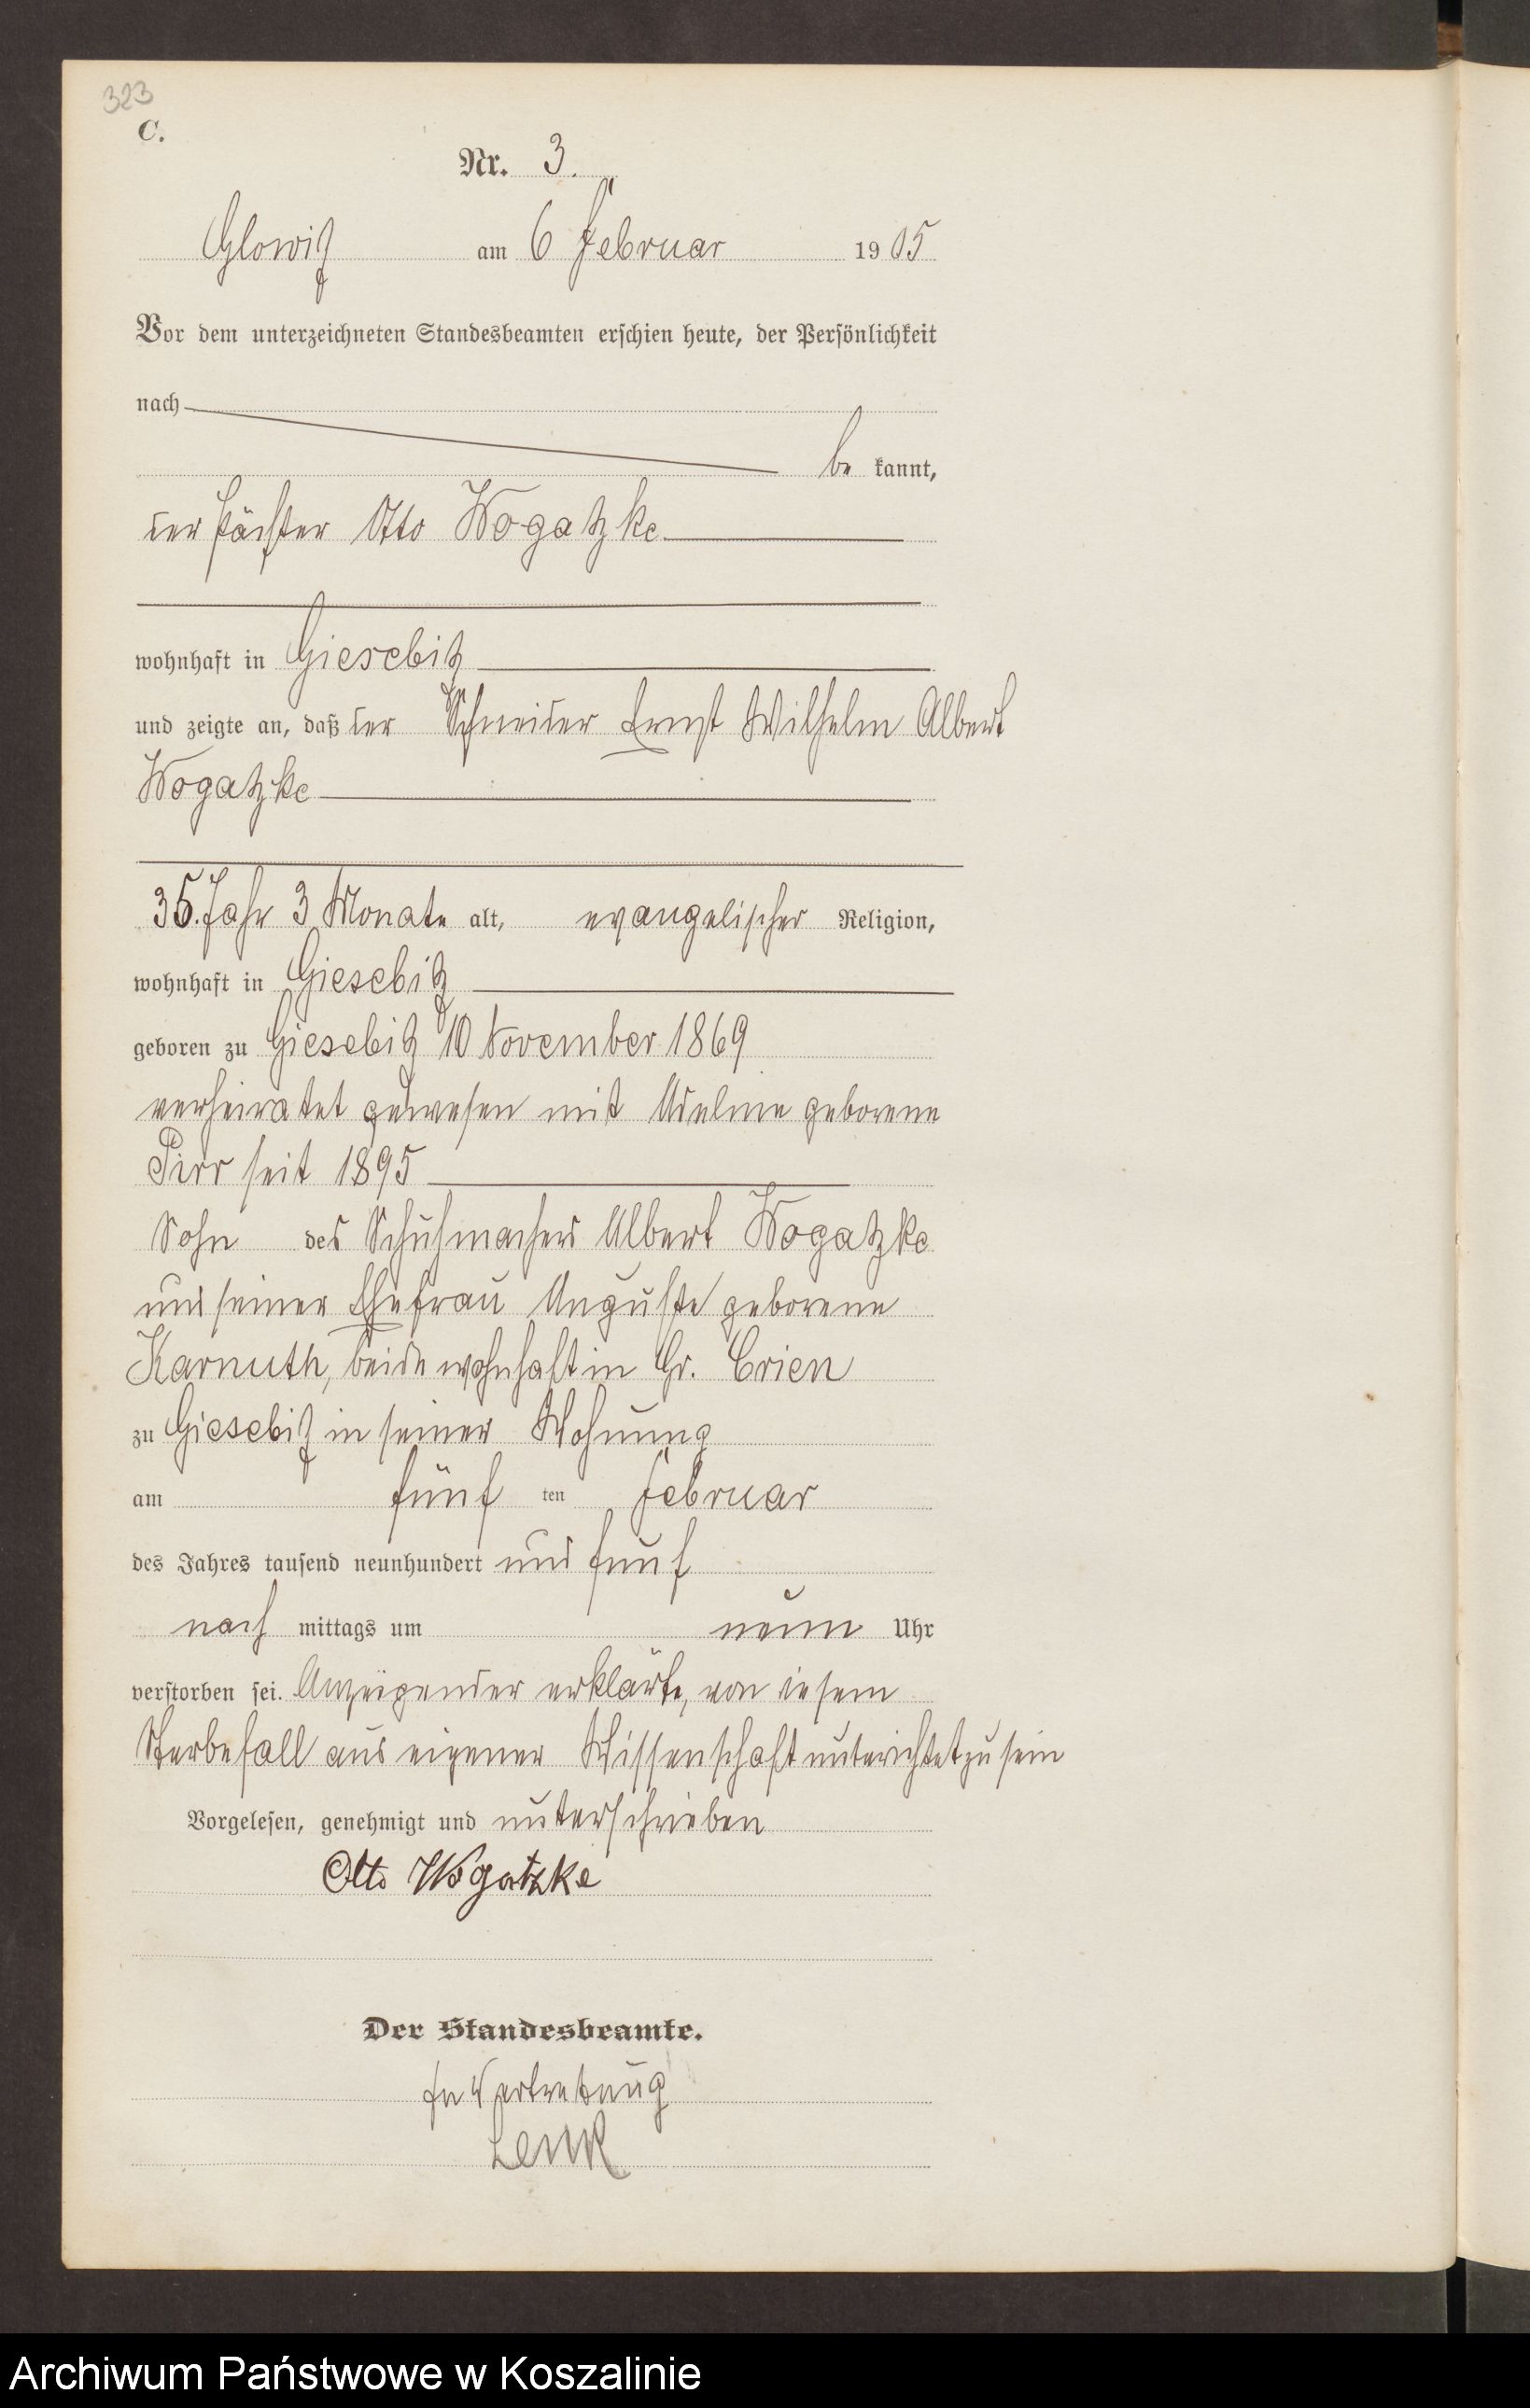 323
C.
Nr. 3.
Glowitz am 6 Februar 1905
Vor dem unterzeichneten Standesbeamten erschien heute, der Persönlichkeit
nach
be kannt,
der Pächter Otto Wogatzke
wohnhaft in Giesebitz
und zeigte an, daß der Schneider Ernst Wilhelm Albert
Wogatzke
35 Jahr 3 Monate alt, evangelischer Religion,
wohnhaft in Giesebitz
geboren zu Giesebitz 10 November 1869
verheiratet gewesen mit geborene
Pirr seit 1895
Sohn des Schuhmachers Albert Wogatzke
und seiner Ehefrau Auguste geborene
Karnuth, beide wohnhaft in Gr. Crien
zu Giesebitz in seiner Wohnung
am fünf ten Februar
des Jahres tausend neunhundert und fünf
nach mittags um neun Uhr
verstorben sei. Anzeigender erklärte, von diesem
Sterbefall aus eigener Wissenschaft unterichtet zu sein
Vorgelesen, genehmigt und unterschrieben
Otto Wogatzke
Der Standesbeamte.
In Vertretung
Lenk
Archiwum Państwowe w Koszalinie